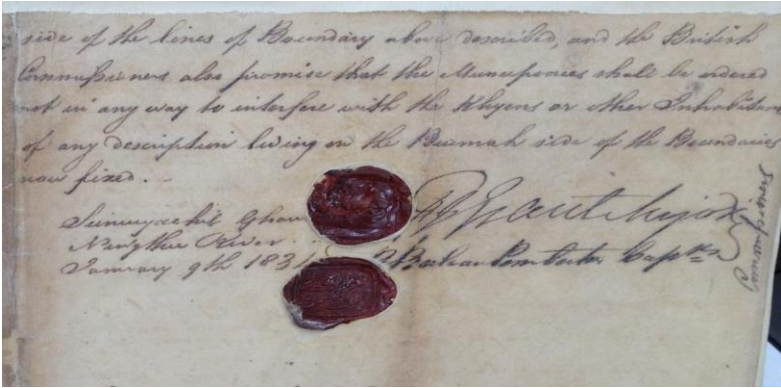 side of the lines of Boundary above described, and the British
Commissioners also promise that the Muneepoories shall be ordered
not in any way to interfere with the Khyens or other Inhabitan
of any description living on the Burmah side of the Boundaries
now fixed. -
Sunnyachil Ghau
Ningthee River
January 9th 183
F J Grant Major
R Boileau Pemberton Captn
Commissioners